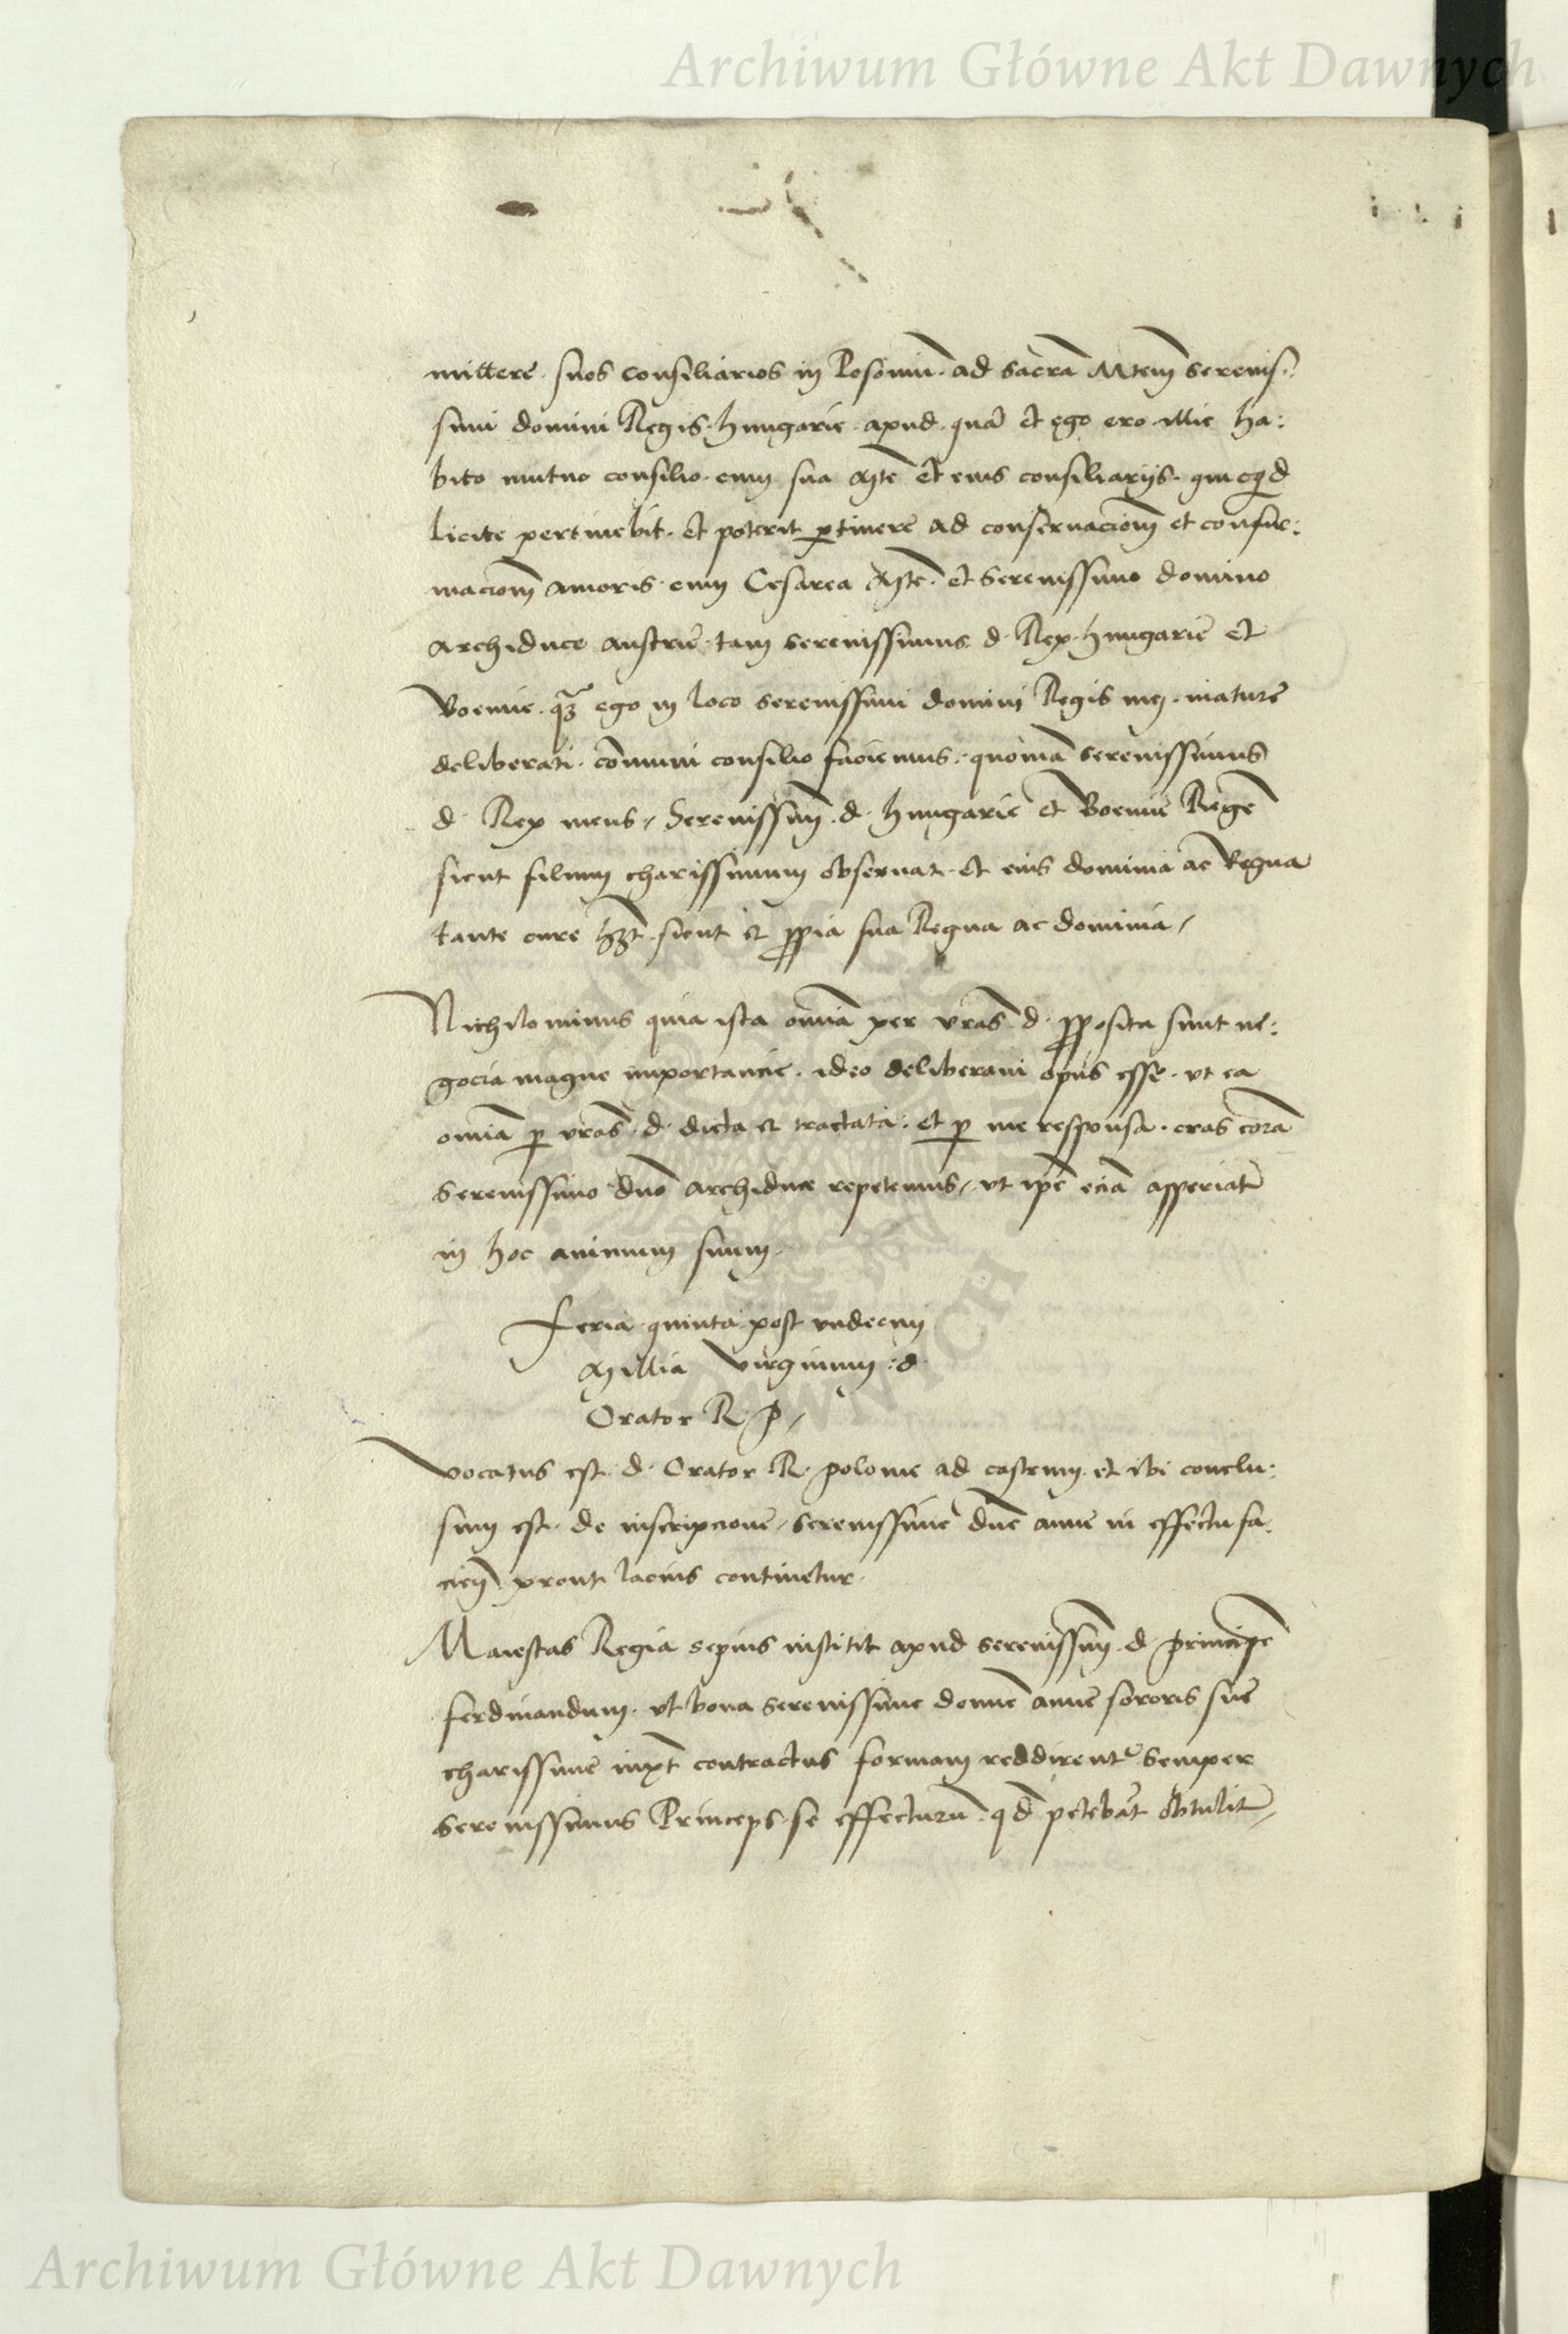 Archiwum Główne Akt Dawnych
mittere suos consiliarios in Posoniū ad sacrā Mtem serenis:
simi domini Regis hungarie apud quā et ego ero illic ha:
bito mutuo consilio cum sua Mte et eius consiliarijs quicqd
licite pertinebit et poterit ptinere ad conseruacionē et confir:
macionē amoris cum Cesarea Mte et Serenissimo domino
archiduce austrie tam serenissimus d Rex hungarie et
Boemie qȝ ego in loco serenissimi domini Regis mei mature
deliberati cōmuni consilio faciemus quoniā serenissimus
d Rex meus Serenissimū d hungarie et Boemie Regē
sicut filium charissimum obseruat et eius dominia ac Regna
tante cure hȝt sicut et ppia sua Regna ac dominia
Nichilominus quia ista omīa per vras d pposita sunt ne:
gocia magne importancie ideo deliberaui opus esse vt ea
omīa p vras d dicta et tractata et p me responsa cras corā
Serenissimo dno archiduce repetemus vt ipe eciā apperiat
in hoc animum suum
Feria quinta post vndecim
Millia virginum d
Orator R P
vocatus est d Orator R polonie ad castrum et ibi conclu:
sum est de inscripcione serenissime dne anne in effectu fa:
ciend prout lacius continetur
Maiestas Regia sepius institit apud serenissimū d principē
ferdinandum vt bona serenissime domne anne sororis sue
charissime iuxt contractus formam reddirent semper
serenissimus Princeps se effecturū qd petebat obtulit
Archiwum Główne Akt Dawnych